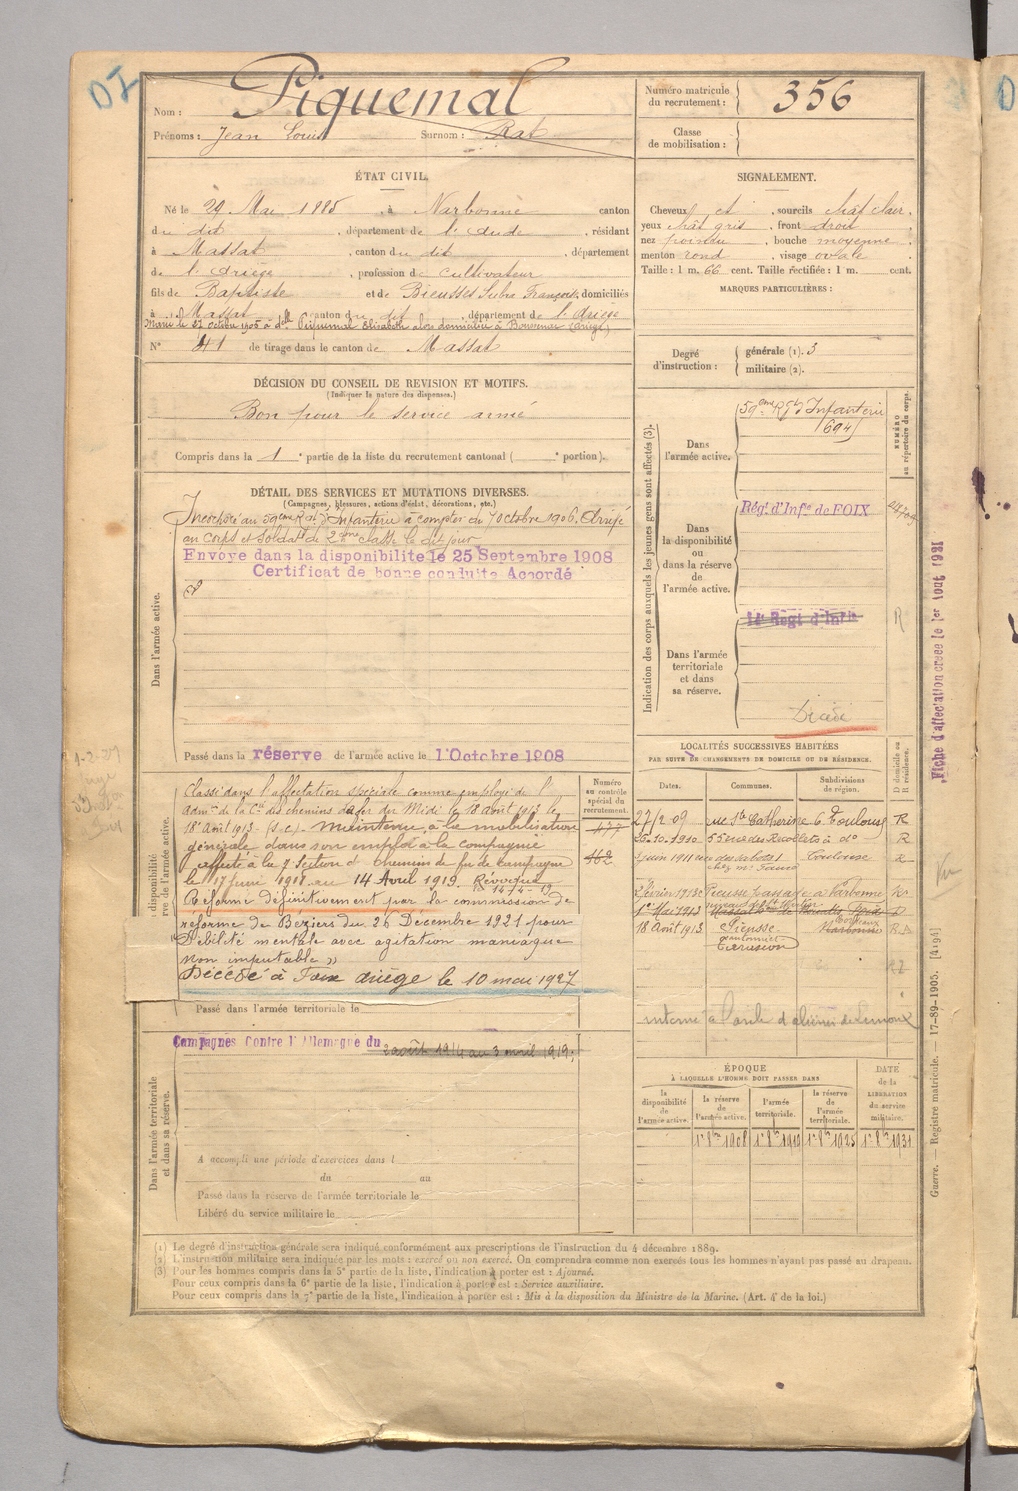 DI
Nom : Piquemal
Prénoms : Jean Louis Surnom : Rat
Numéro matricule du recrutement : 356
Classe de mobilisation :
ÉTAT CIVIL.
Né le 29 Mai 1885, à Narbonne canton
du dit, département de l'Aude, résidant
à Massat, canton du dit, département
de l'Ariège, profession de cultivateur
fils de Baptiste et de Bieusses Subra Françoise, domiciliés
à Massat canton du dit, département de l'Ariège
Marié le 27 octobre 1905 à delle Piquemal Elisabeth alors domiciliée à Boussenac (Ariège)
N° 41 de tirage dans le canton de Massat
SIGNALEMENT.
Cheveux et, sourcils chât clair,
yeux chât gris, front droit
nez pointu, bouche moyenne
menton rond, visage ovale
Taille : 1 m. 66 cent. Taille rectifiée : 1 m. cent.
MARQUES PARTICULIÈRES :
Degré d'instruction :
générale (1). 3
militaire (2).
DÉCISION DU CONSEIL DE REVISION ET MOTIFS.
(Indiquer la nature des dispenses.)
Bon pour le service armé
Compris dans la 1e partie de la liste du recrutement cantonal ( e portion).
DÉTAIL DES SERVICES ET MUTATIONS DIVERSES.
(Campagnes, blessures, actions d'éclat, décorations, etc.)
Dans l'armée active.
Incorporé au 59ème Rgt d'Infanterie à compter du 7 octobre 1906, Arrivé
au corps et soldat de 2ème classe le dit jour
Envoyé dans la disponibilité le 25 Septembre 1908
Certificat de bonne conduite Accordé
Passé dans la réserve de l'armée active le 1 Octobre 1908
Indication des corps auxquels les jeunes gens sont affectés (3).
NUMÉRO au répertoire du corps.
Dans l'armée active.
59ème Rgt d'Infanterie
694
Dans la disponibilité ou dans la réserve de l'armée active.
Régt d'Infie de FOIX
Dans l'armée territoriale et dans sa réserve.
14e Regt d'Infie
R
Décédé
Fiche d'affectation créée le 1er Aout 1921
disponibilité
rve de l'armée active.
Numéro au contrôle spécial du recrutement.
477
462
Classé dans l'affectation spéciale comme employé de l'
Admon de la Cie des chemins de fer du Midi le 18 août 1913 le
18 Août 1913 - (S.C.) - Maintenu à la mobilisation
générale dans son emploi à la Compagnie
affecté à la 7 Section de Chemins de fer de Campagne
le 17 Juin 1918 au 14 Avril 1919. Révoqué
14-4-19
Réformé définitivement par la commission de
réforme de Béziers du 26 Décembre 1921 pour
"Débilité mentale avec agitation maniaque
non imputable"
Décédé à Foix Ariège le 10 mai 1927
Passé dans l'armée territoriale le
LOCALITÉS SUCCESSIVES HABITÉES
PAR SUITE DE CHANGEMENTS DE DOMICILE OU DE RÉSIDENCE.
Dates. Communes. Subdivisions de région. D domicile ou R résidence.
27/2 09 rue Ste Catherine 6 Toulouse R
25.10.1910 55 rue des Recollets à do R
Juin 1911 Toulouse R
2 février 1913 Narbonne
1er Mai 1913
18 Août 1913 Bordeaux Narbonne
cantonnier
interné à l'asile d'aliénés de Limoux
Dans l'armée territoriale et dans sa réserve.
Campagnes Contre l'Allemagne du 2 août 1914 au 3 avril 1919;
A accompli une période d'exercices dans l
du au
Passé dans la réserve de l'armée territoriale le
Libéré du service militaire le
ÉPOQUE
À LAQUELLE L'HOMME DOIT PASSER DANS
la disponibilité de l'armée active. la réserve de l'armée active. l'armée territoriale. la réserve de l'armée territoriale. DATE de la LIBÉRATION du service militaire.
1er 8bre 1908 1er 8bre 1919 1er 8bre 1925 1er 8bre 1931
(1) Le degré d'instruction générale sera indiqué conformément aux prescriptions de l'instruction du 4 décembre 1889.
(2) L'instruction militaire sera indiquée par les mots : exercé ou non exercé. On comprendra comme non exercés tous les hommes n'ayant pas passé au drapeau.
(3) Pour les hommes compris dans la 5e partie de la liste, l'indication à porter est : Ajourné.
Pour ceux compris dans la 6e partie de la liste, l'indication à porter est : Service auxiliaire.
Pour ceux compris dans la 7e partie de la liste, l'indication à porter est : Mis à la disposition du Ministre de la Marine. (Art. 4 de la loi.)
Guerre. — Registre matricule. — 17-89-1905. [4194]